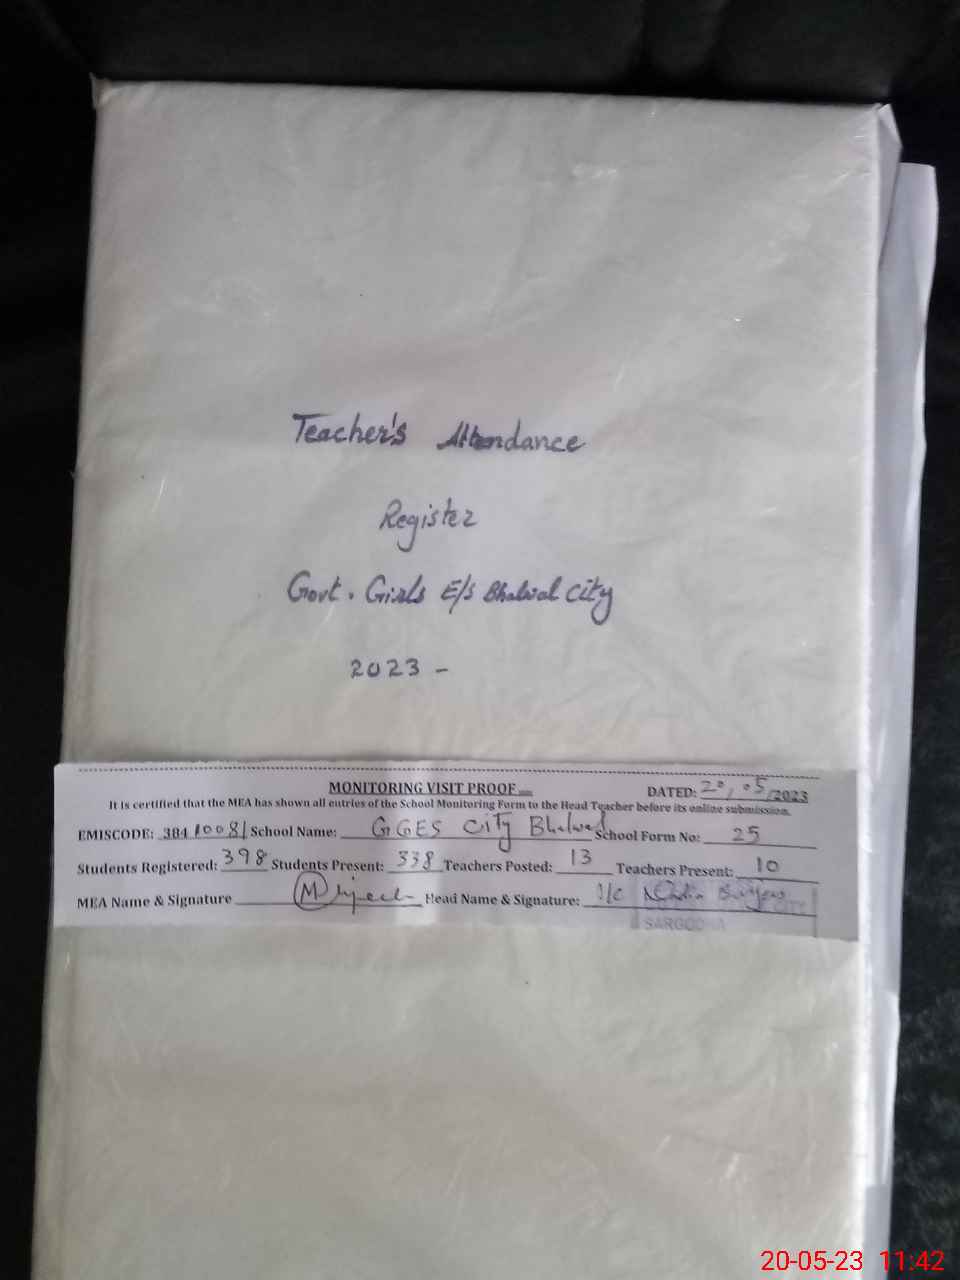 Teacher's Attendance
Register
Govt. Girls E/S Bhalwal City
2023 -
MONITORING VISIT PROOF DATED: 20, 05/2023
It is certified that the MEA has shown all entries of the School Monitoring Form to the Head Teacher before its online submission.
EMISCODE: 38410081 School Name: GGES City Bhalwal School Form No: 25
Students Registered: 398 Students Present: 338 Teachers Posted: 13 Teachers Present: 10
MEA Name & Signature Head Name & Signature: I/C
CITY
SARGODHA
20-05-23 11:42